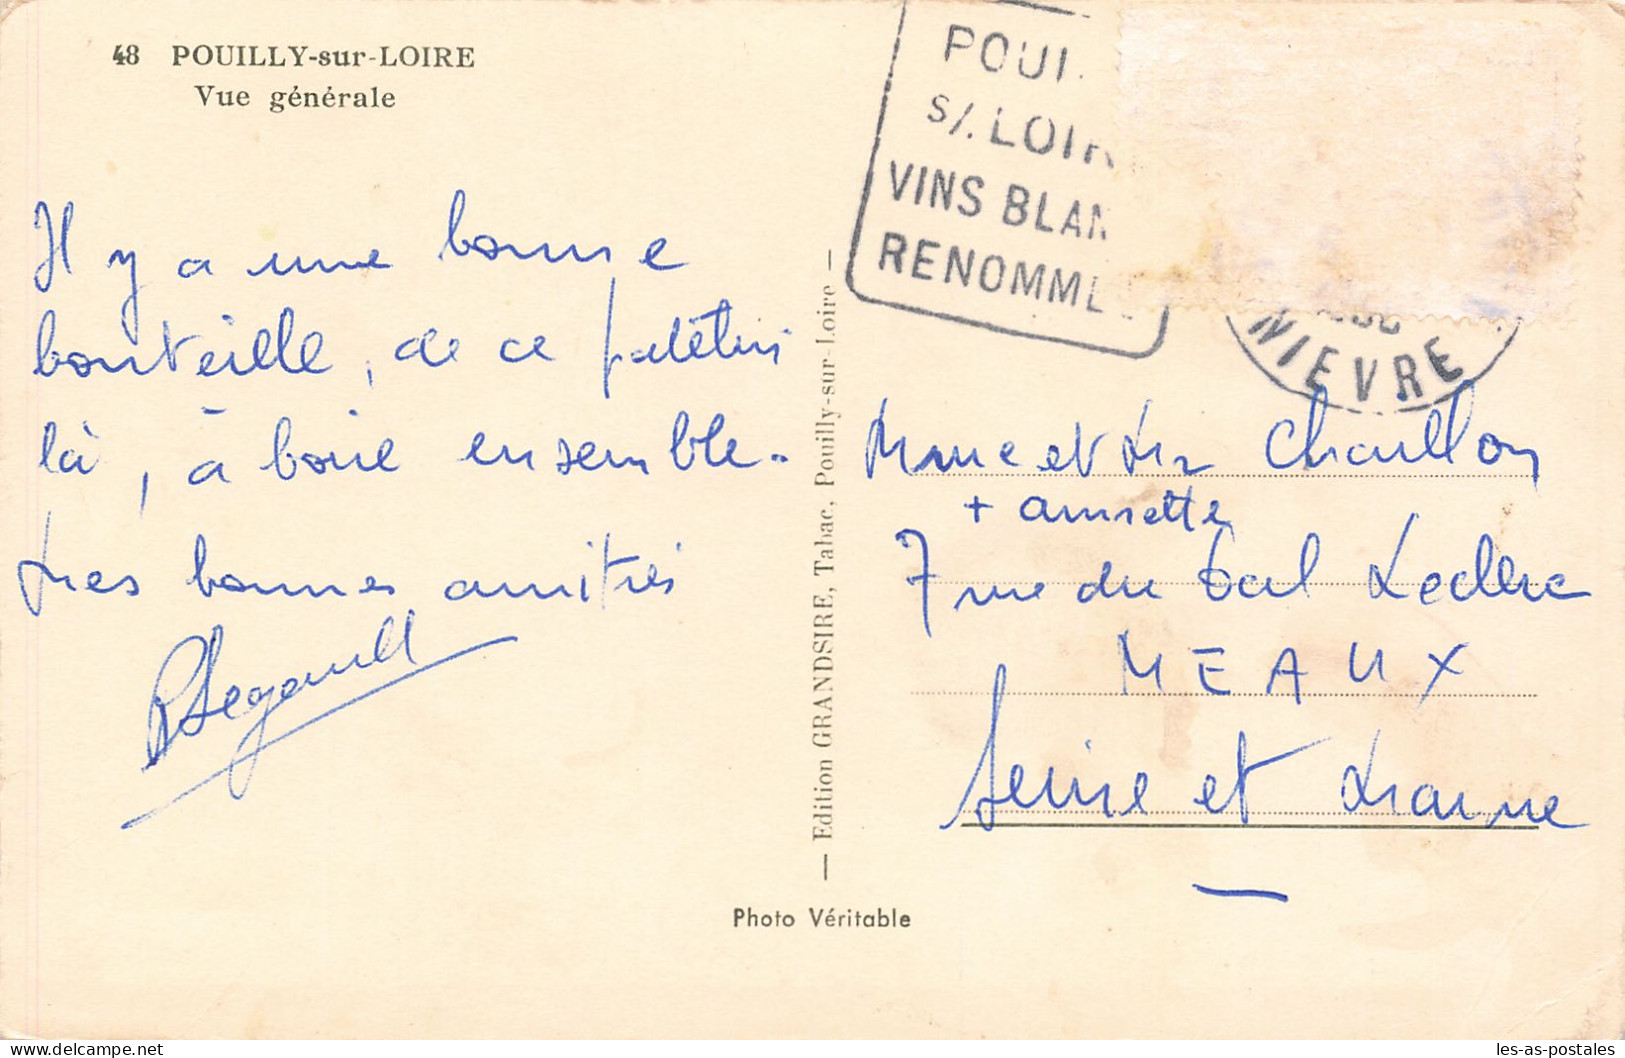 48 POUILLY-sur-LOIRE
Vue générale
Il y a une bonne
bouteille, de ce patelin
là, à boire ensemble.
Mes bonnes amitiés
POUI
S/.LOIR
VINS BLAN
RENOMMÉ
NIEVRE
— Edition GRANDSIRE, Tabac, Pouilly-sur-Loire —
Mme et Mr Chaillon
+ annette
7 rue du Gal Leclerc
MEAUX
Seine et Marne
Photo Véritable
delcampe.net
les-as-postales